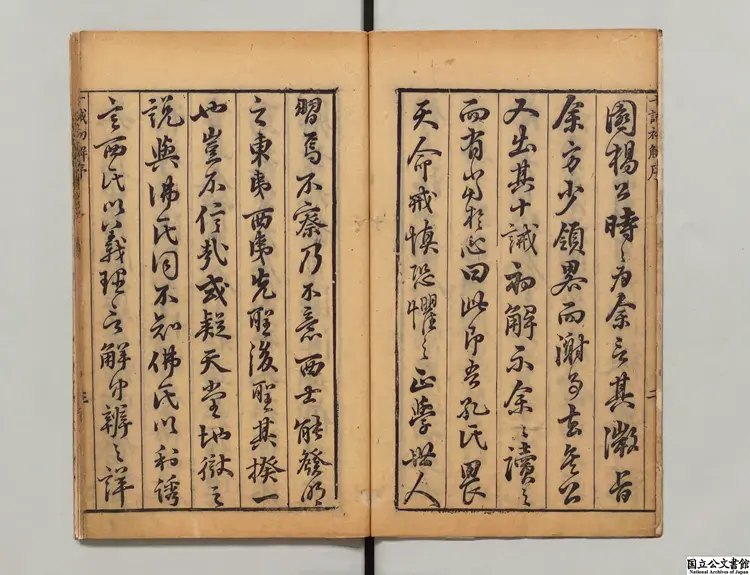 十誡初解序
二
園楊公時〻為余言其微旨
余方少領畧而謝事去矣公
又出其十誡初解示余〻讀之
而有當於心曰此即吾孔氏畏
天命戒慎恐懼之正學世人
習焉不察乃不意西士能發明
之東夷西夷先聖後聖其揆一
也豈不信哉或疑天堂地獄之
說與佛氏同不知佛氏以利誘
言西氏以義理言解中辨之詳
十誡初解序
三
国立公文書館
National Archives of Japan